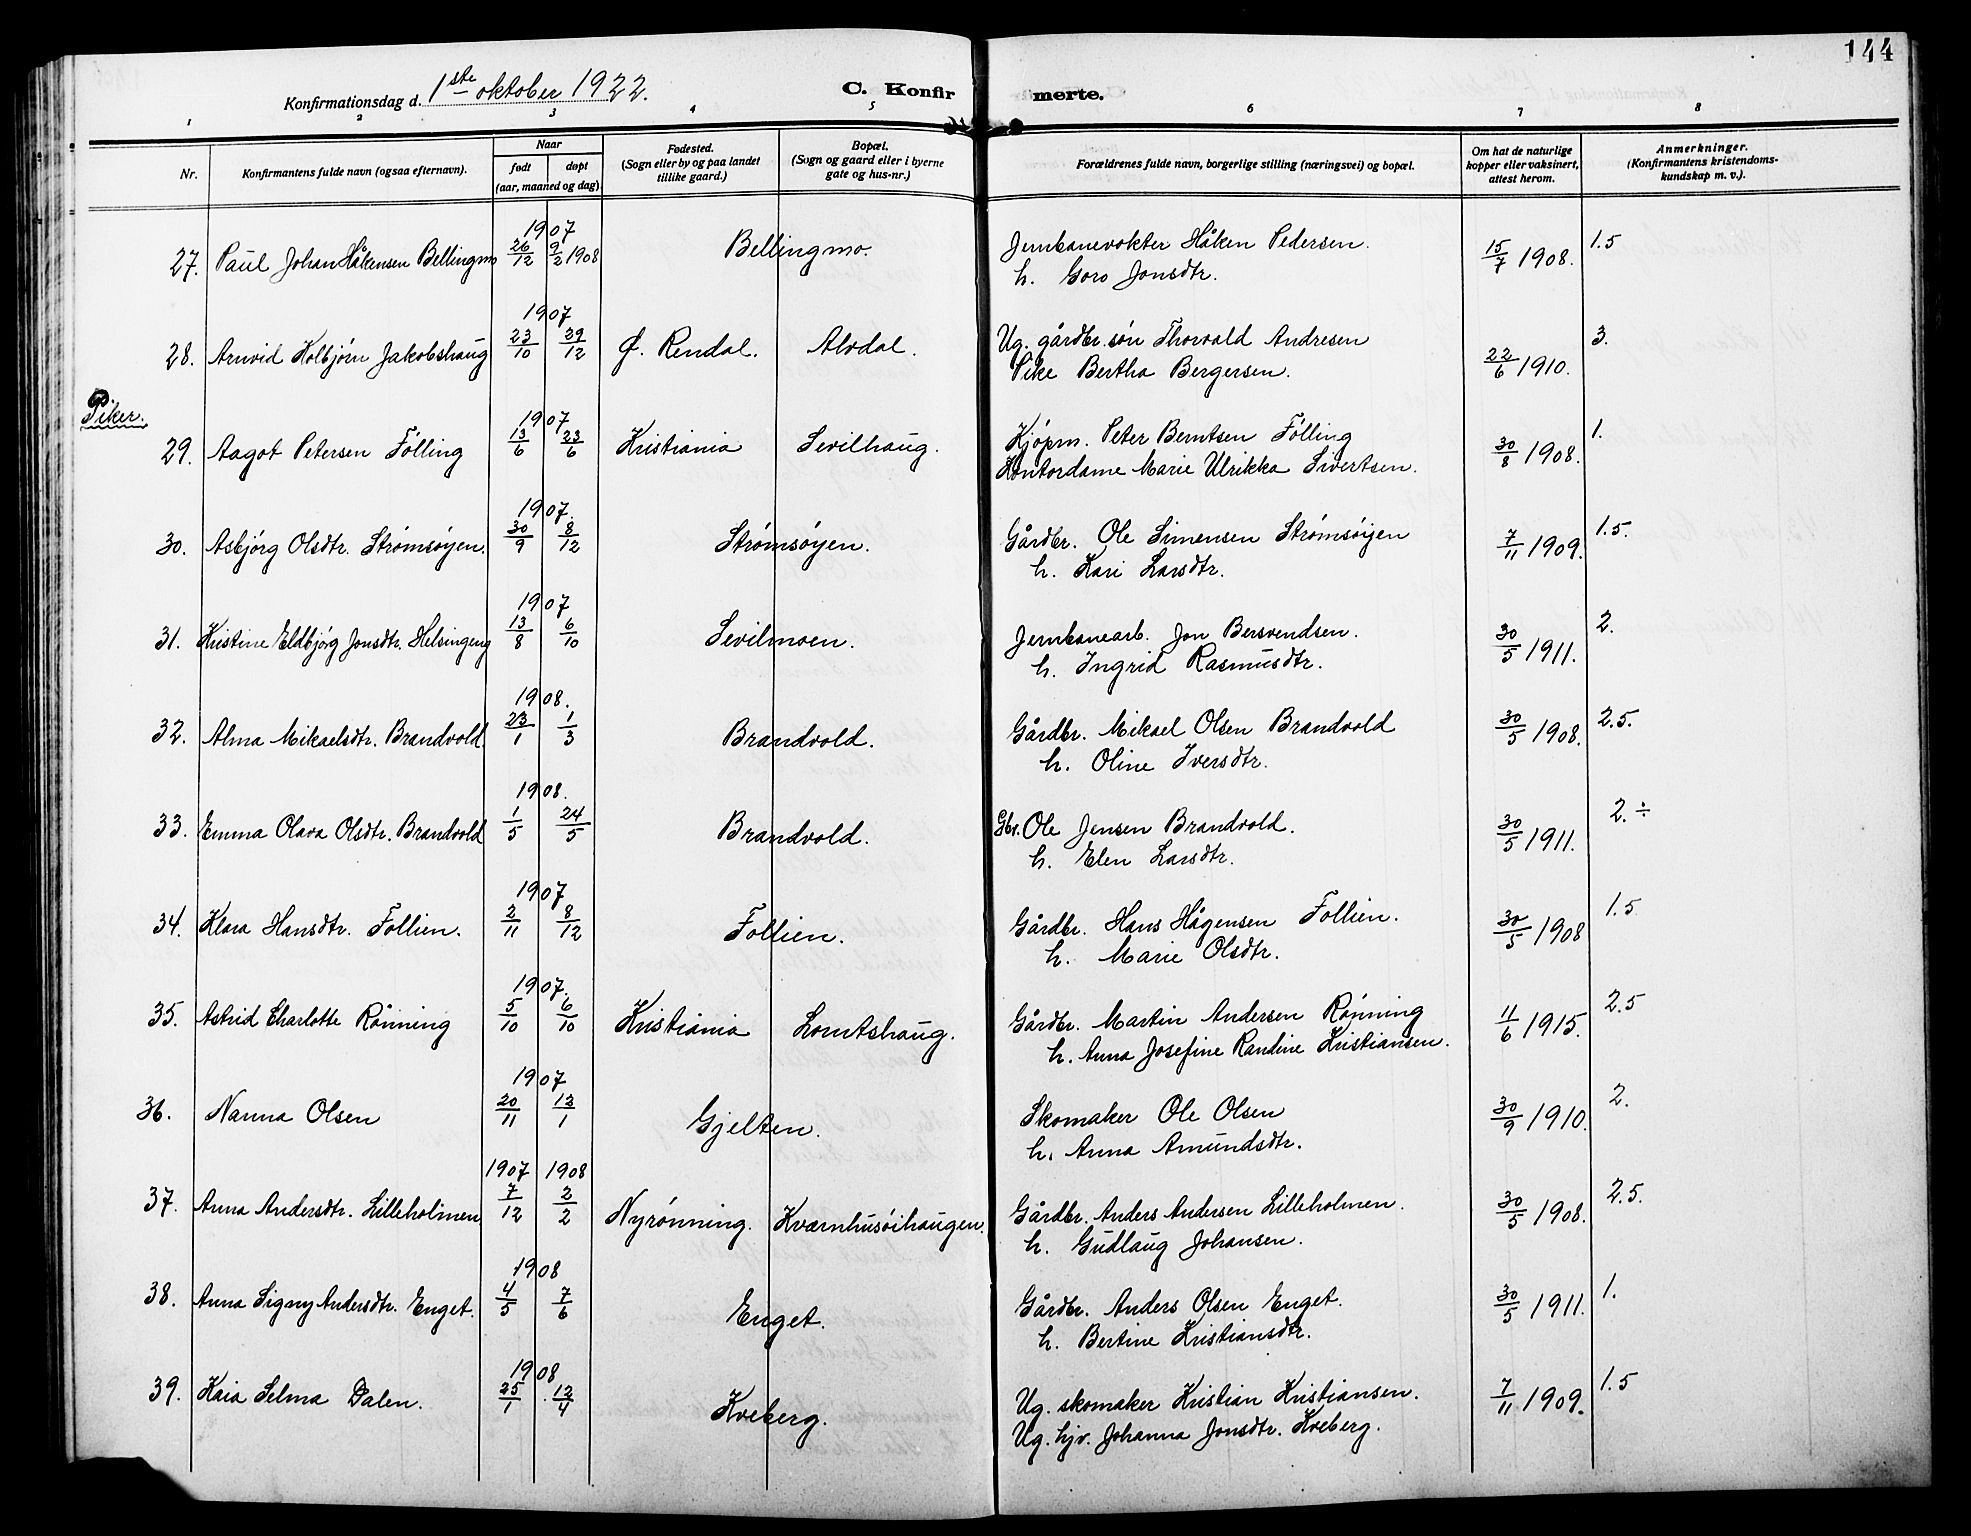 144
Konfirmationsdag d. 1ste oktober 1922.
C. Konfirmerte.
1 2 3 4 5 6 7 8
Nr.
Konfirmantens fulde navn (ogsaa efternavn).
Naar
født
døpt
(aar, maaned og dag)
Fødested.
(Sogn eller by og paa landet
tillike gaard.)
Bopæl.
(Sogn og gaard eller i byerne
gate og hus-nr.)
Forældrenes fulde navn, borgerlige stilling (næringsvei) og bopæl.
Om hat de naturlige
kopper eller vaksinert,
attest herom.
Anmerkninger.
(Konfirmantens kristendoms-
kundskap m. v.).
1907
27. Paul Johan Håkensen Bellingmo 26/12 9/2 1908 Bellingmo. Jernbanevokter Håken Pedersen. 15/7 1908. 1.5
h. Goro Jonsdtr.
1907
28. Arnvid Kolbjørn Jakobshaug 23/10 29/12 Ø. Rendal. Alvdal. Ug. gårdbr. søn Thorvald Andresen 22/6 1910. 3.
Pike Bertha Bergersen.
Piker.
1907
29. Aagot Petersen Følling 13/6 23/6 Kristiania Sevilhaug. Kjøpm. Peter Berntsen Følling 30/8 1908. 1.
Kontordame Marie Ulrikka Sivertsen.
1907.
30. Asbjørg Olsdtr. Strømsøyen. 30/9 8/12 Strømsøyen. Gårdbr. Ole Simensen Strømsøyen 7/11 1909. 1.5.
h. Kari Larsdtr.
1907
31. Kristine Eldbjørg Jonsdtr. Helsingeng 13/8 6/10 Sevilmoen. Jernbanearb. Jon Bersvendsen. 30/5 1911. 2.
h. Ingrid Rasmusdtr.
1908.
32. Alma Mikaelsdtr. Brandvold. 23/1 1/3 Brandvold. Gårdbr. Mikael Olsen Brandvold 30/5 1908. 2.5.
h. Oline Iversdtr.
1908.
33. Emma Olava Olsdtr. Brandvold 1/5 24/5 Brandvold. Gbr. Ole Jensen Brandvold. 30/5 1911. 2.÷
h. Elen Larsdtr.
1907
34. Klara Hansdtr. Follien. 2/11 8/12 Follien. Gårdbr. Hans Hågensen Follien. 30/5 1908 1.5
h. Marie Olsdtr.
1907.
35. Astrid Charlotte Rønning 5/10 6/10 Kristiania Lomtshaug. Gårdbr. Martin Andersen Rønning 11/6 1915. 2.5
h. Anna Josefine Randine Kristiansen.
1907
36. Nanna Olsen 20/11 12/1 Gjelten. Skomaker Ole Olsen 30/9 1910. 2.
h. Anna Amundsdtr.
1907 1908
37. Anna Andersdtr. Lilleholmen 7/12 2/2 Nyrønning. Kværnhusøihaugen. Gårdbr. Anders Andersen Lilleholmen. 30/5 1908. 2.5.
h. Gudlaug Johansen.
1908
38. Anna Signy Andersdtr. Enget. 4/5 7/6 Enget. Gårdbr. Anders Olsen Enget. 30/5 1911. 1.
h. Bertine Kristiansdtr.
1908
39. Kaia Selma Dalen. 25/1 12/4 Kveberg. Ug. skomaker Kristian Kristiansen. 7/11 1909. 1.5
Ug. hjv. Johanna Jonsdtr. Kveberg.